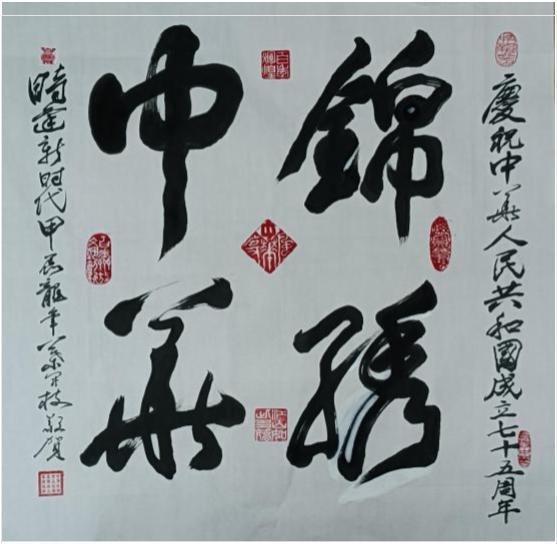 慶祝中華人民共和國成立七十五周年
錦綉
中華
時逢新时代甲辰龍年枝敬賀